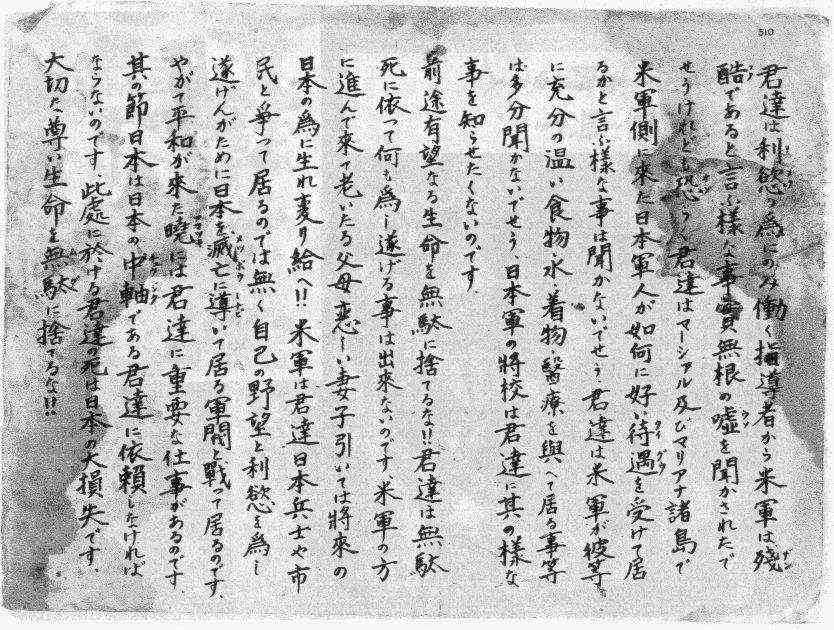 510
君達は利慾の為にのみ働く指導者から米軍は殘
酷であると言ふ様な事實無根の嘘を聞かされたで
せうけれども恐らく君達はマーシアル及びマリアナ諸島で
米軍側に來た日本軍人が如何に好い待遇を受けて居
るかと言ふ様な事は聞かないでせう、君達は米軍が彼等
に充分の温い食物、水、着物、醫療を與へて居る事等
は多分聞かないでせう、日本軍の將校は君達に其の様な
事を知らせたくないのです、
前途有望なる生命を無駄に捨てるな!!君達は無駄
死に依つて何も為し遂げる事は出來ないのです、米軍の方
に進んで來て老いたる父母恋しい妻子引いては將來の
日本の為に生れ変り給へ!!米軍は君達日本兵士や市
民と爭つて居るのでは無く自己の野望と利慾を為し
遂げんがために日本を滅亡に導いて居る軍閥と戰つて居るのです、
やがて平和が來た曉には君達に重要な仕事があるのです、
其の節日本は日本の中軸である君達に依頼しなければ
ならないのです、此處に於ける君達の死は日本の大損失です、
大切な尊い生命を無駄に捨てるな!!